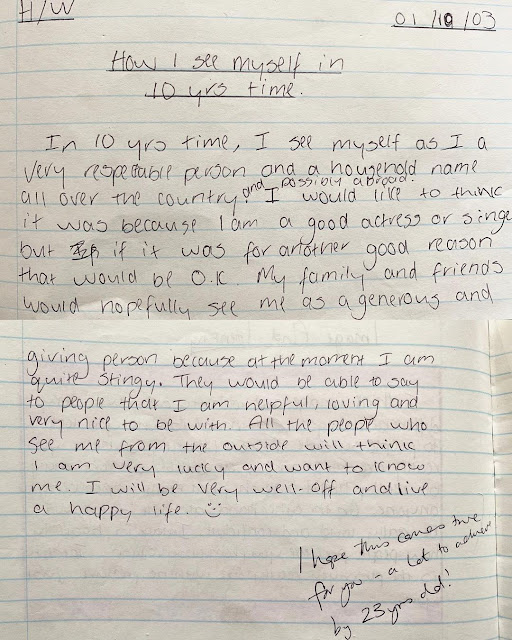 H/W
01/10/03
How I see myself in
10 yrs time.
In 10 yrs time, I see myself as I a
very respectable person and a household name
all over the country and possibly abroad. I would like to think
it was because I am a good actress or singe
but if it was for another good reason
that would be O.K. My family and friends
would hopefully see me as a generous and
giving person because at the moment I am
quite stingy. They would be able to say
to people that I am helpful, loving and
very nice to be with. All the people who
see me from the outside will think
I am very lucky and want to know
me. I will be very well-off and live
a happy life. :)
I hope this comes true
for you - a lot to achieve
by 23 yrs old!